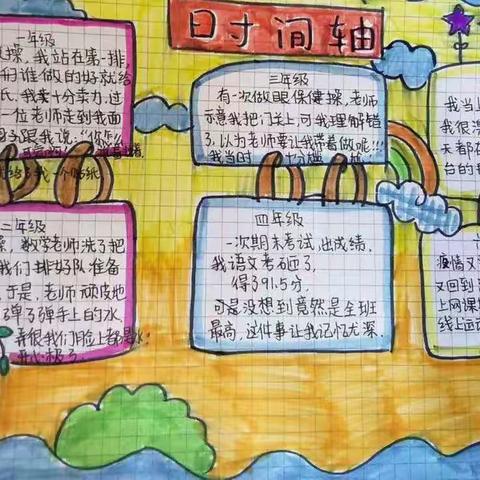 时间轴
一年级
操,我站在第一排,
们谁做的好就给
我卖十分卖力,过
一位老师走到我面
跟我说,“你怎么
给了我一个贴纸
二年级
操,数学老师洗了把
我们排好队准备
于是,老师顽皮地
弹了弹手上的水,
弄很我们脸上都是水
开心极了。
三年级
有一次做眼保健操,老师
示意我把门关上,可我理解错
了,以为老师要让我带着做呢!!!
我当时十分尴尬
四年级
一次期末考试,出成绩,
我语文考砸了,
得了91.5分,
可是没想到竟然是全班
最高,这件事让我记忆尤深。
我当上
我很
天都在
台的
疫情又
又回到
上网课
线上运动